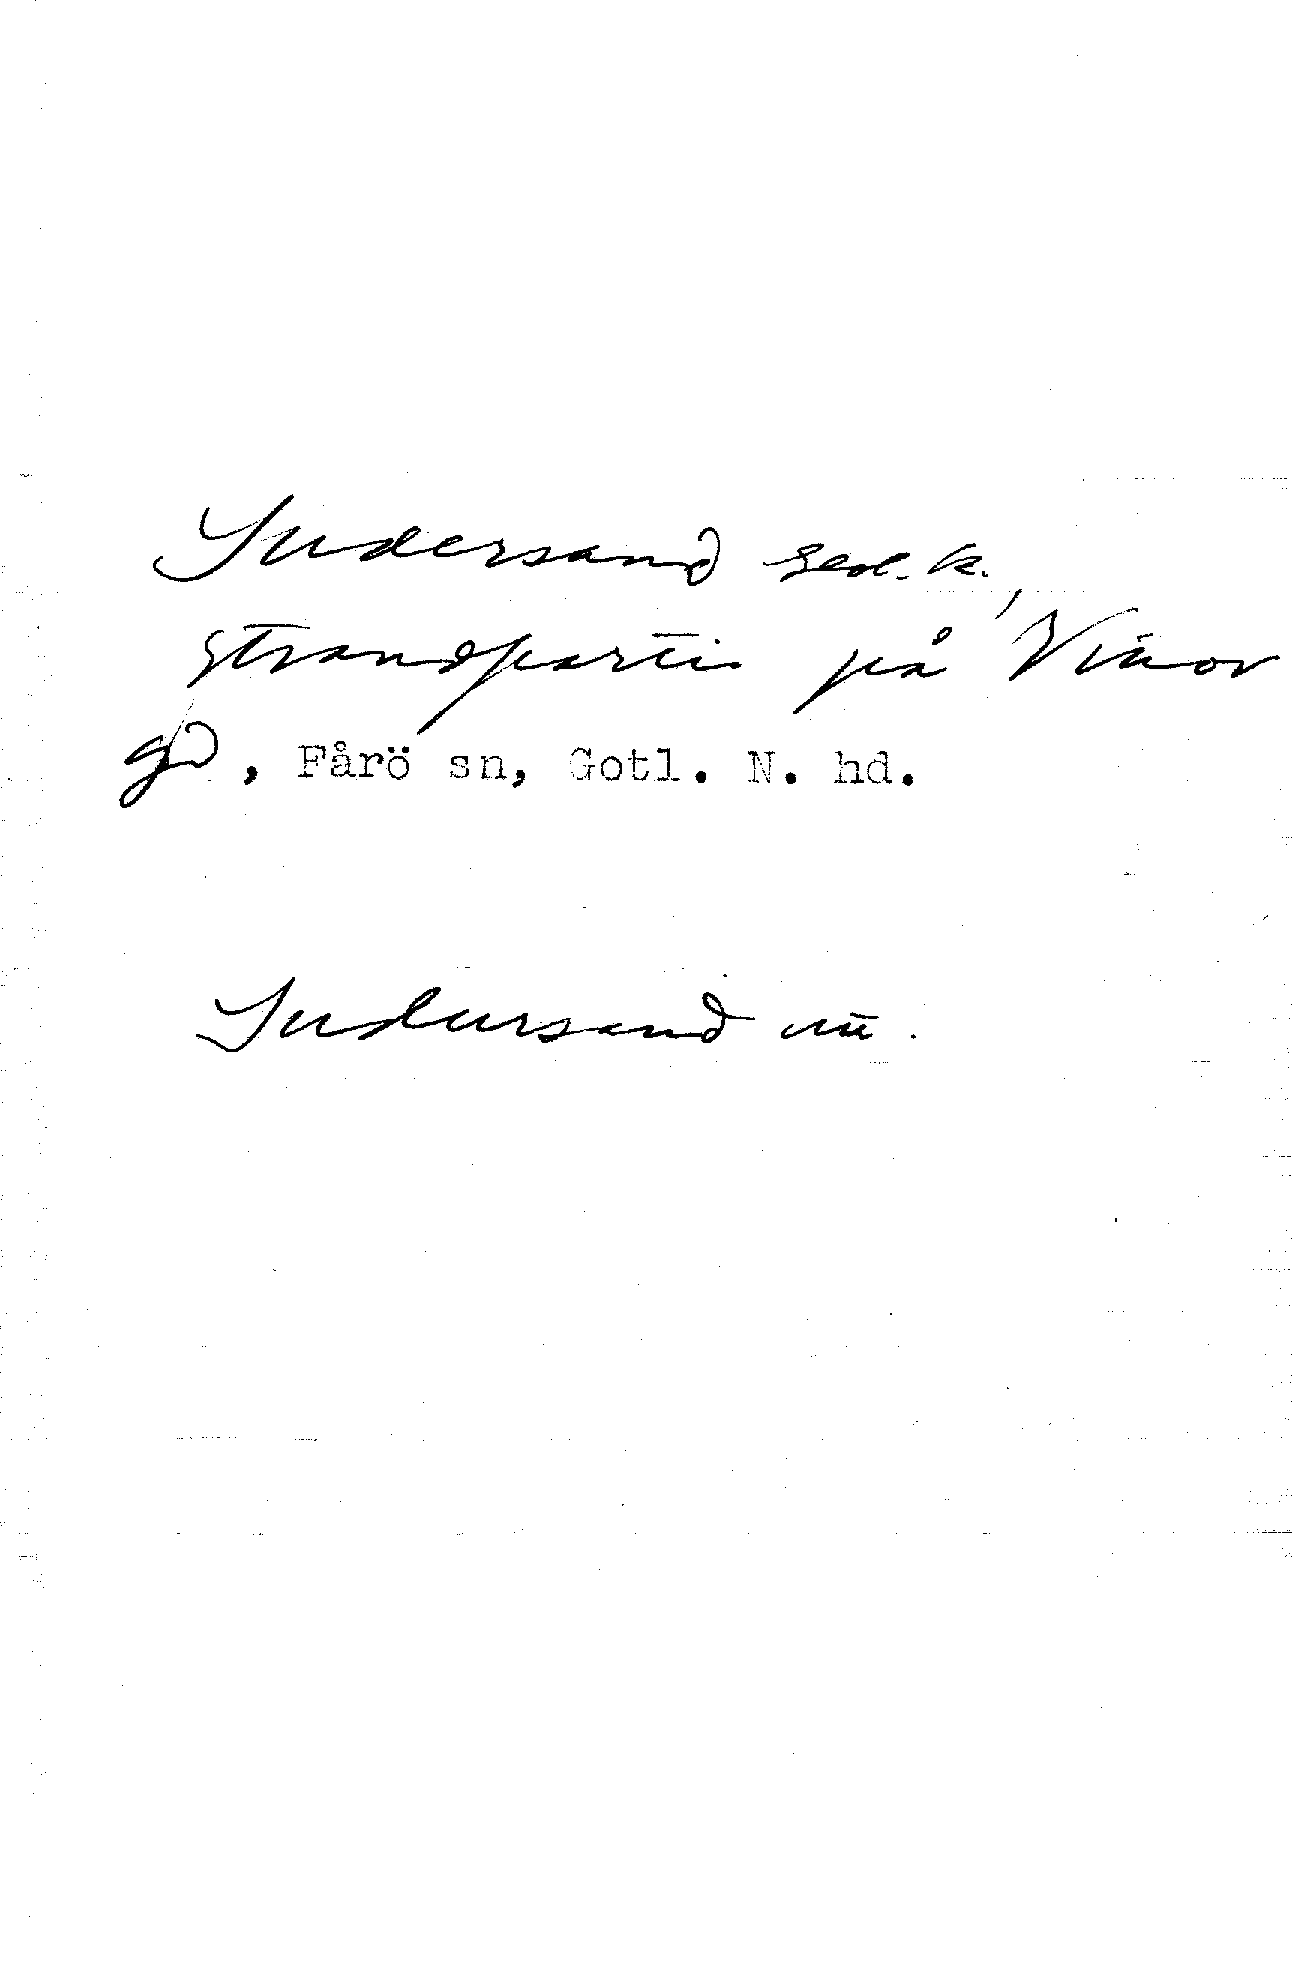 Sudersand geol. k.,
strandparti på Vinor
gd, Fårö sn, Gotl. N. hd.
Sudursand uu.